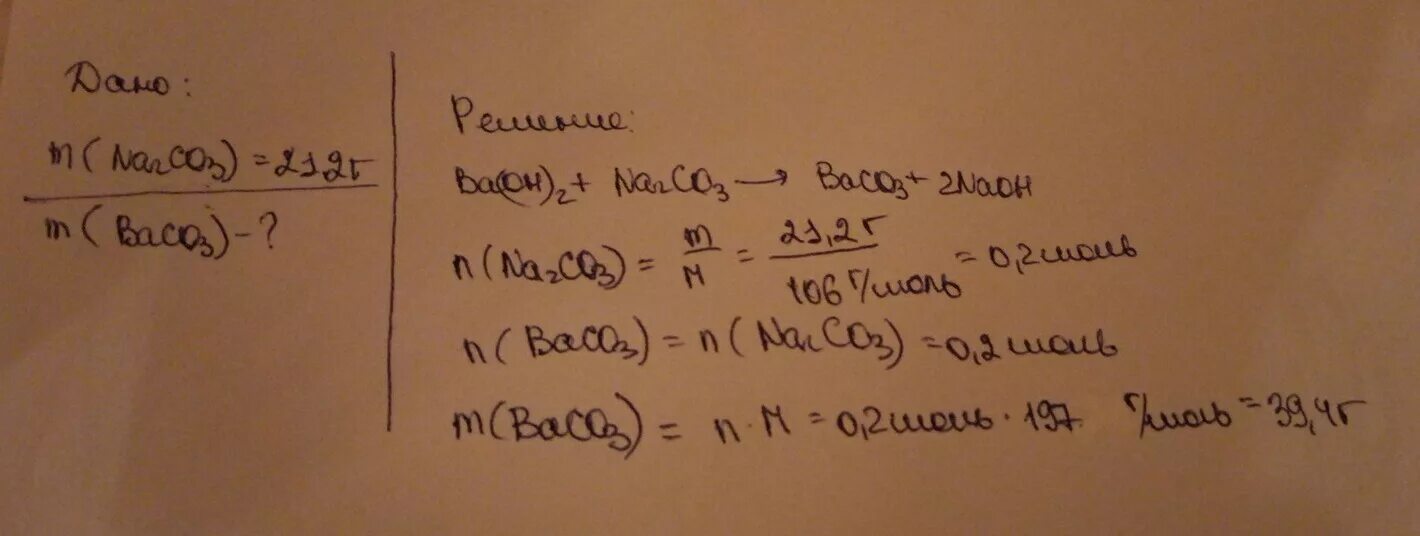 Дано:
m(Na₂CO₃) = 21,2г
m(BaCO₃) - ?
Решение:
Ba(OH)₂ + Na₂CO₃ → BaCO₃ + 2NaOH
n(Na₂CO₃) = m/M = 21,2г/106 г/моль = 0,2 моль
n(BaCO₃) = n(Na₂CO₃) = 0,2 моль
m(BaCO₃) = n · M = 0,2 моль · 197 г/моль = 39,4г